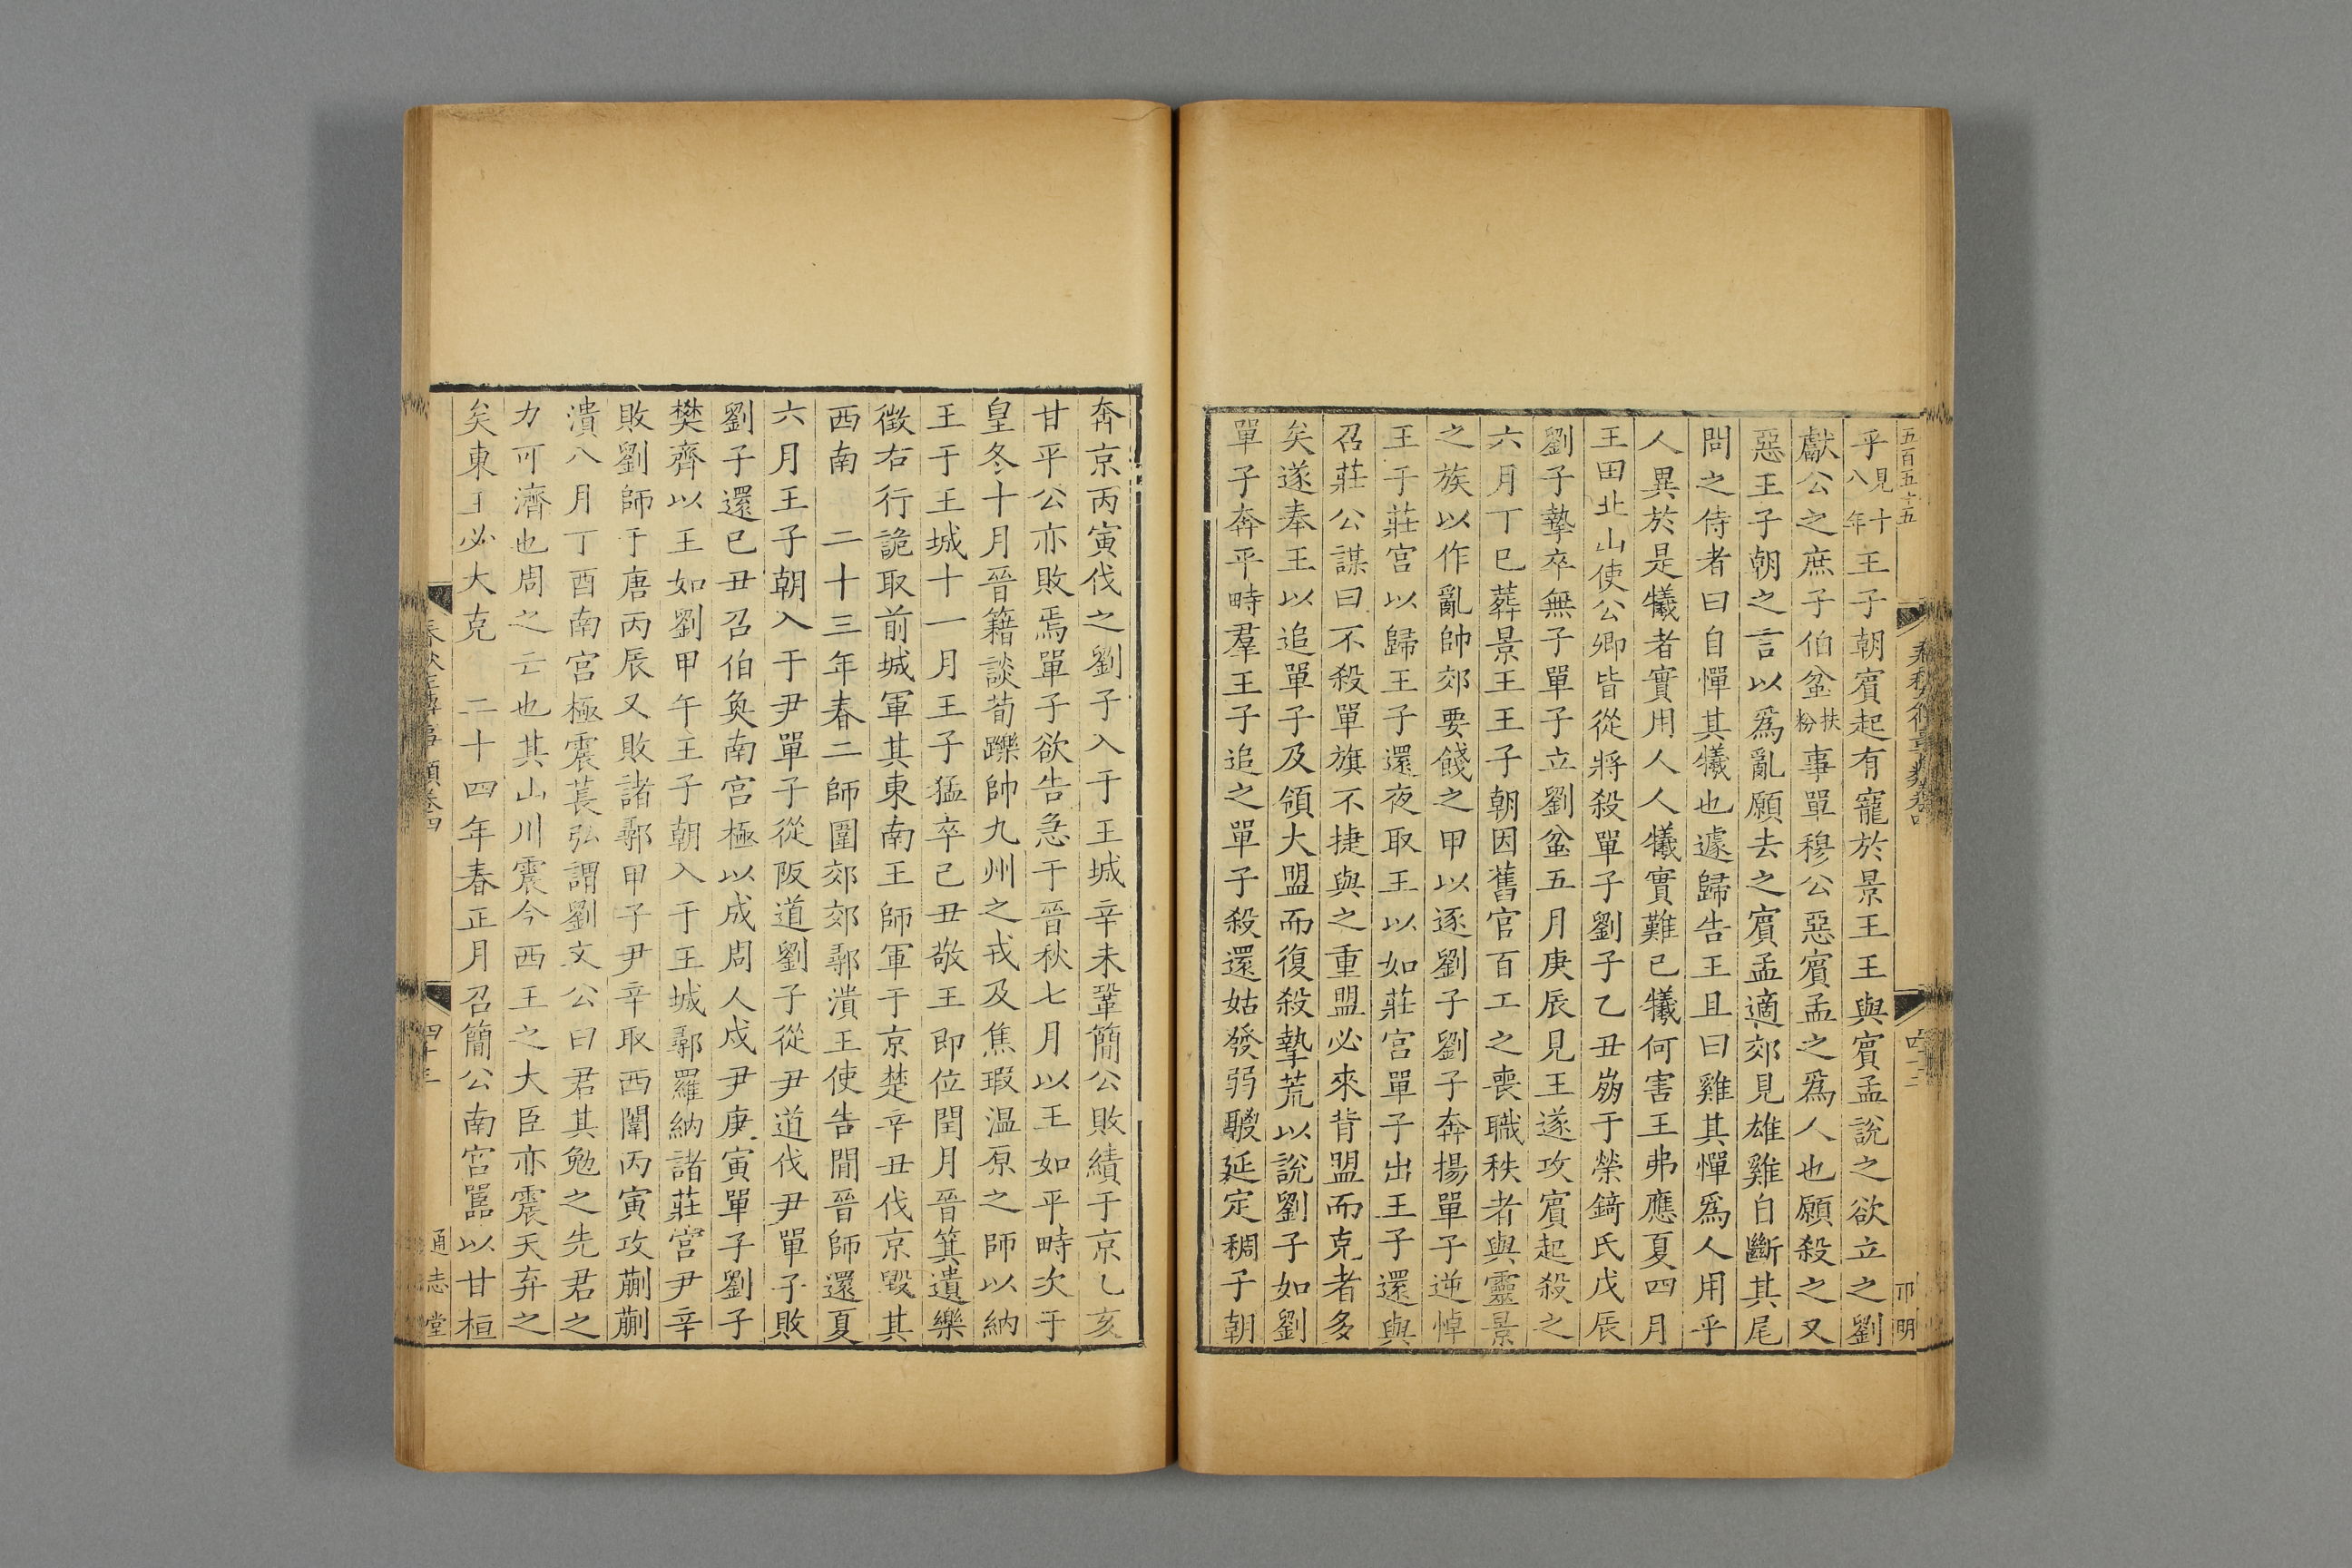 五百五十五
卭明
乎見十八年王子朝賔起有寵於景王王與賔孟說之欲立之劉
獻公之庶子伯蚠扶粉事單穆公惡賔孟之爲人也願殺之又
惡王子朝之言以爲亂願去之賔孟適郊見雄雞自斷其尾
問之侍者曰自憚其犧也遽歸告王且曰雞其憚爲人用乎
人異於是犧者實用人人犧實難已犧何害王弗應夏四月
王田北山使公卿皆從將殺單子劉子乙丑崩于榮錡氏戊辰
劉子摯卒無子單子立劉蚠五月庚辰見王遂攻賔起殺之
六月丁巳葬景王王子朝因舊官百工之喪職秩者與靈景
之族以作亂帥郊要餞之甲以逐劉子劉子奔揚單子逆悼
王于莊宮以歸王子還夜取王以如莊宮單子出王子還與
召莊公謀曰不殺單旗不捷與之重盟必來背盟而克者多
矣遂奉王以追單子及領大盟而復殺摯荒以說劉子如劉
單子奔平畤羣王子追之單子殺還姑發弱鬷延定稠子朝
奔京丙寅伐之劉子入于王城辛未鞏簡公敗績于京乙亥
甘平公亦敗焉單子欲告急于晉秋七月以王如平畤次于
皇冬十月晉籍談荀躒帥九州之戎及焦瑕温原之師以納
王于王城十一月王子猛卒己丑敬王即位閏月晉箕遺樂
徵右行詭取前城軍其東南王師軍于京楚辛丑伐京毀其
西南 二十三年春二師圍郊郊鄩潰王使告閒晉師還夏
六月王子朝入于尹單子從阪道劉子從尹道伐尹單子敗
劉子還己丑召伯奐南宮極以成周人戍尹庚寅單子劉子
樊齊以王如劉甲午王子朝入于王城鄩羅納諸莊宮尹辛
敗劉師于唐丙辰又敗諸鄩甲子尹辛取西闈丙寅攻蒯蒯
潰八月丁酉南宮極震萇弘謂劉文公曰君其勉之先君之
力可濟也周之亡也其山川震今西王之大臣亦震天弃之
矣東王必大克 二十四年春正月召簡公南宮嚚以甘桓
春秋左傳事類卷四
四十三
通志堂